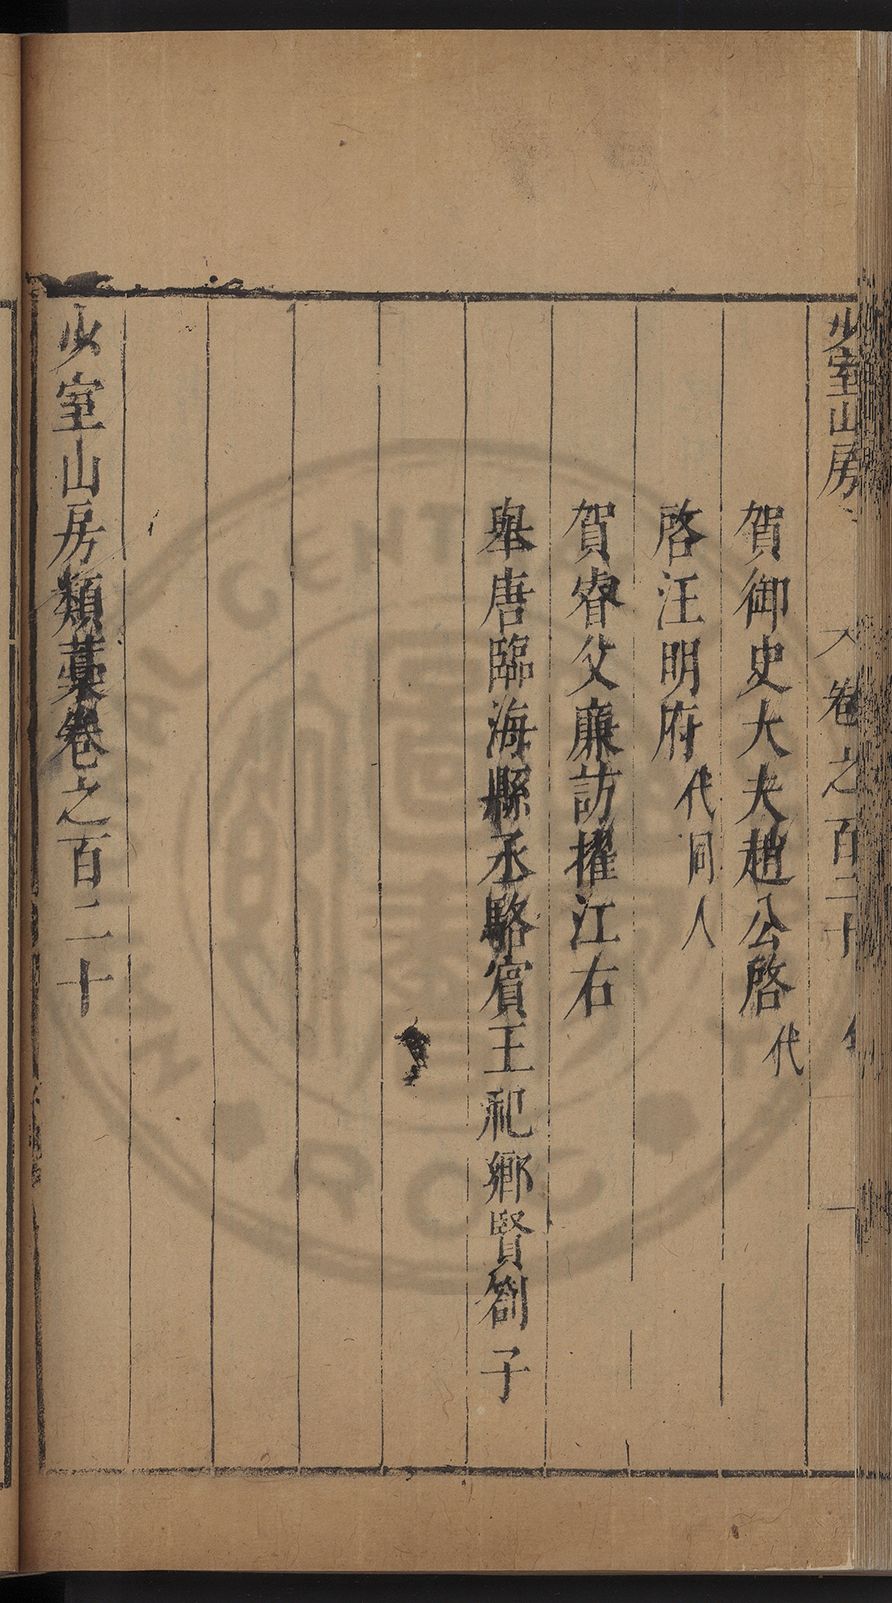 少室山房 卷之百二十
賀御史大夫趙公啓代
啓汪明府代同人
賀睿父廉訪擢江右
舉唐臨海縣丞駱賓王祀鄉賢劄子
少室山房類藁卷之百二十